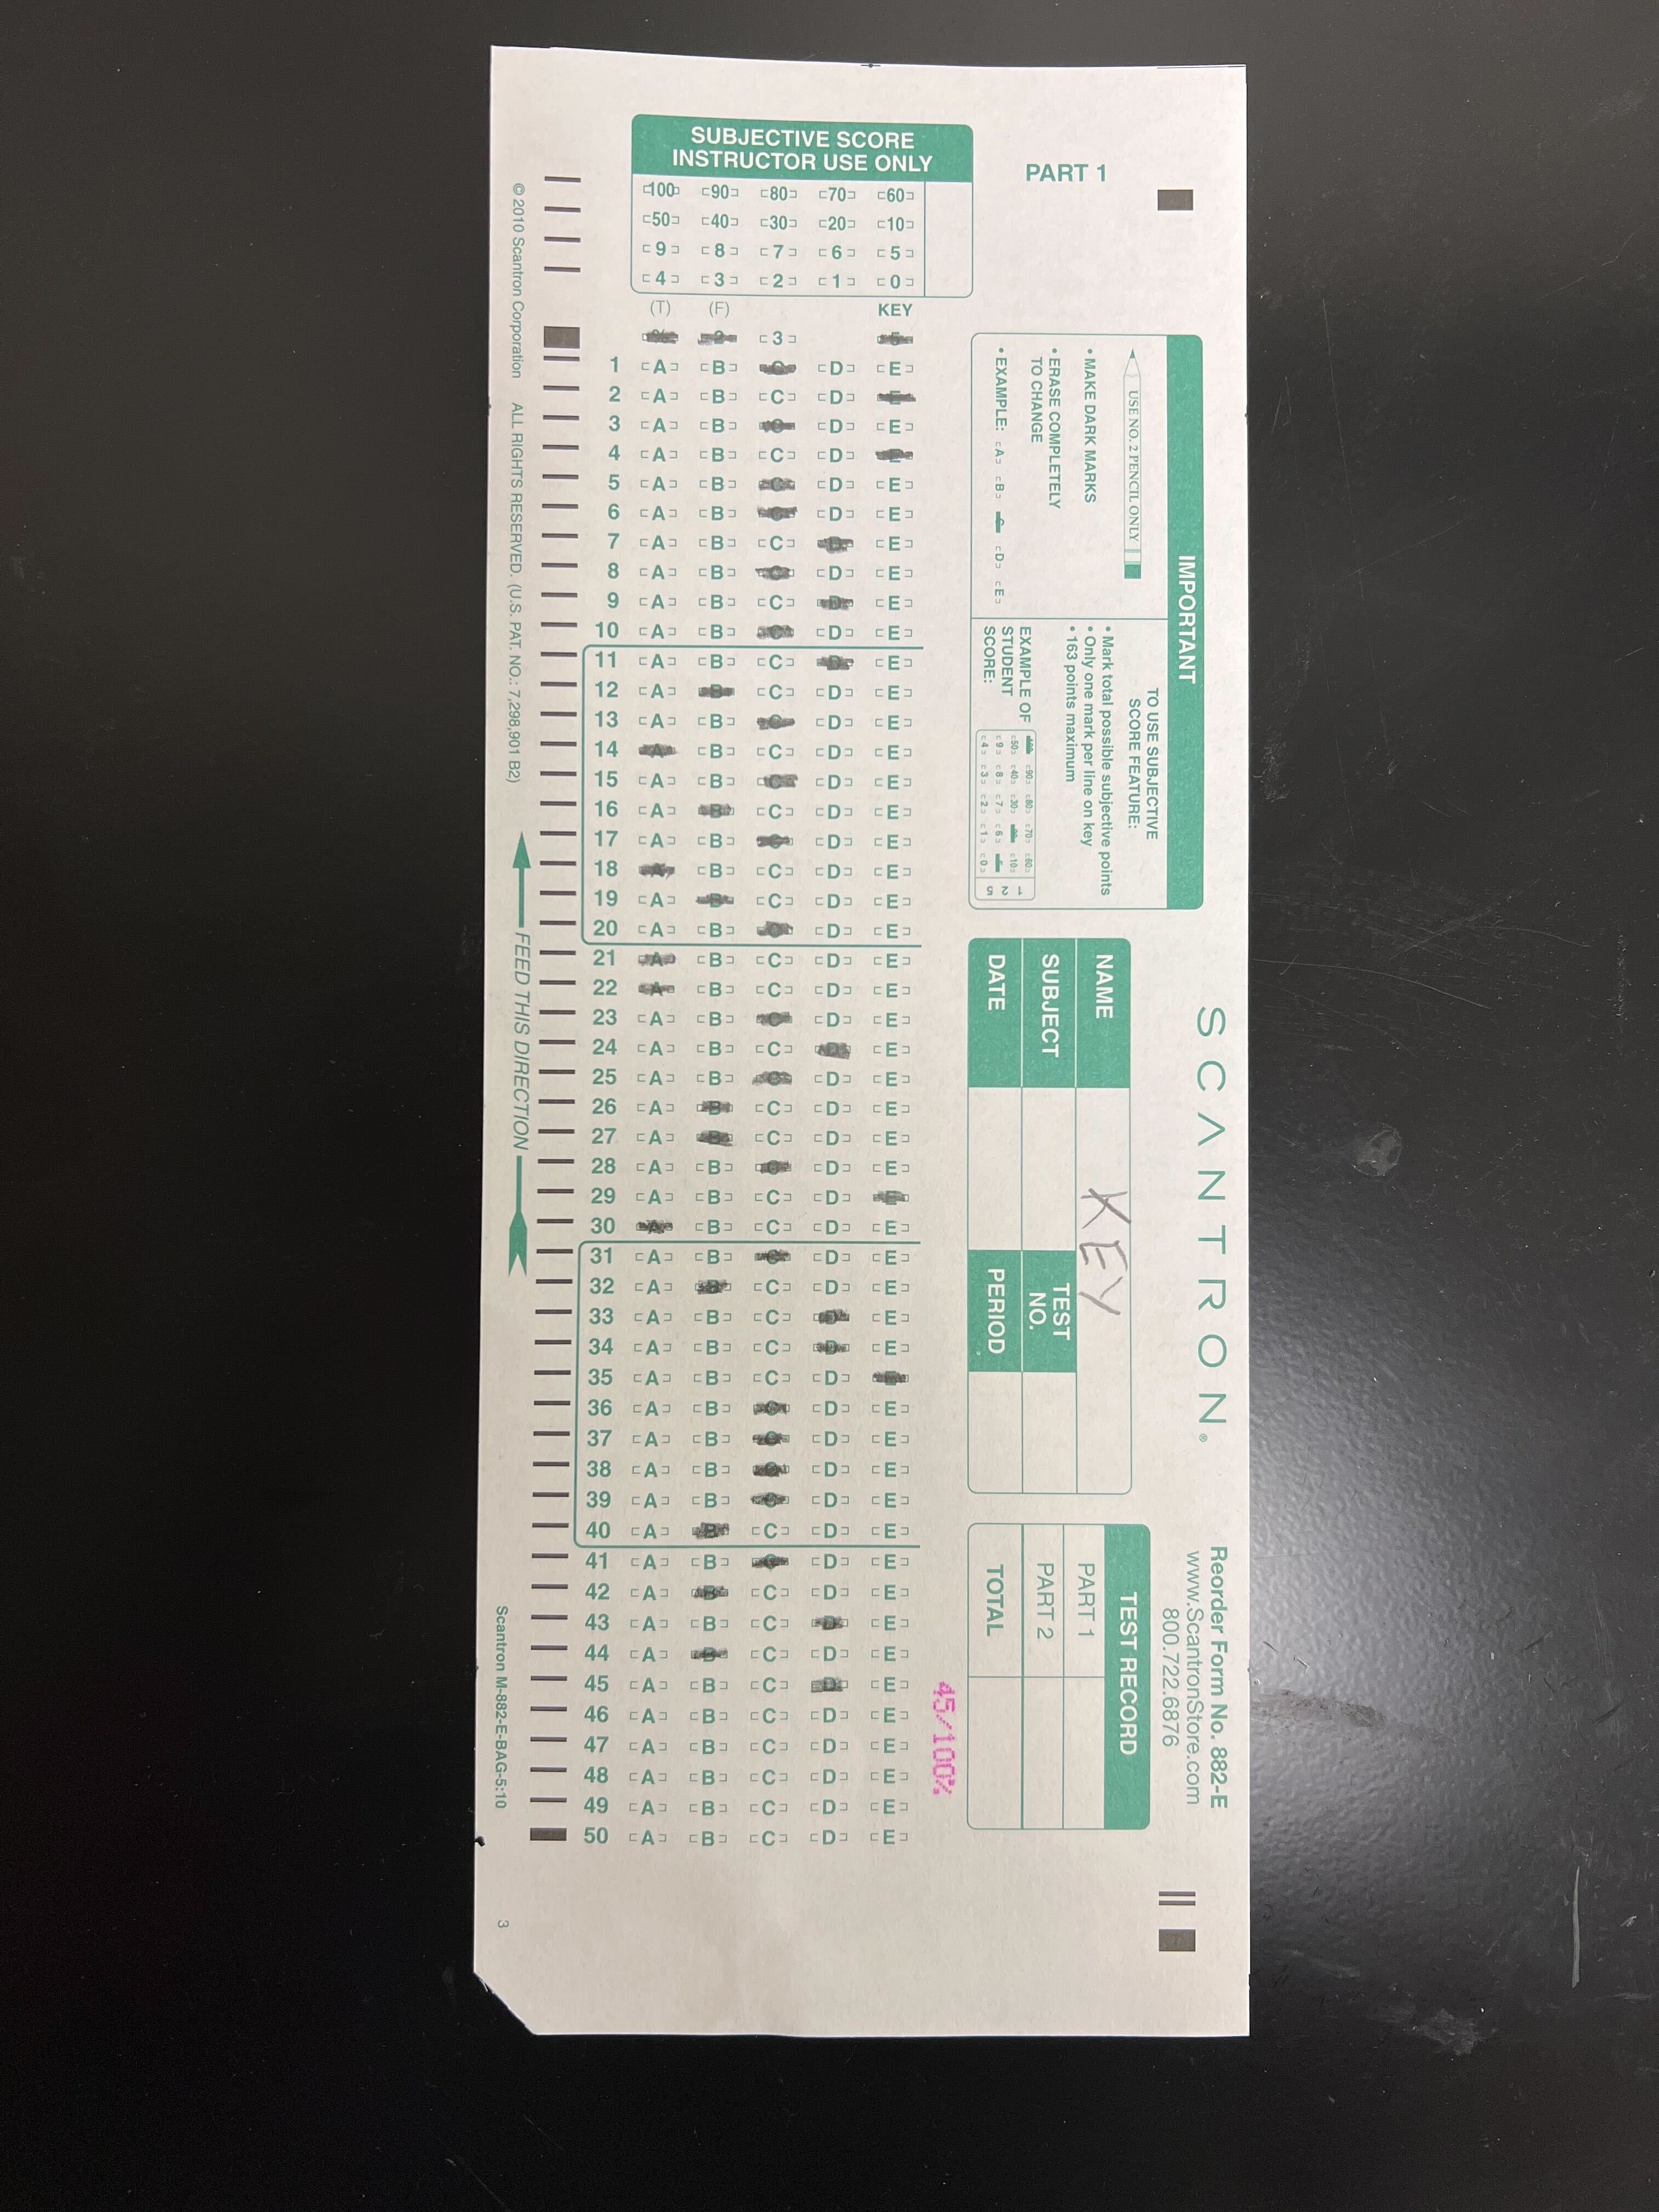 PART 1
SUBJECTIVE SCORE
INSTRUCTOR USE ONLY
100 90 80 70 60
50 40 30 20 10
9 8 7 6 5
4 3 2 1 0
(T) (F) KEY
3
1 A B C D E
2 A B C D E
3 A B C D E
4 A B C D E
5 A B C D E
6 A B C D E
7 A B C D E
8 A B C D E
9 A B C D E
10 A B C D E
11 A B C D E
12 A B C D E
13 A B C D E
14 A B C D E
15 A B C D E
16 A B C D E
17 A B C D E
18 A B C D E
19 A B C D E
20 A B C D E
21 A B C D E
22 A B C D E
23 A B C D E
24 A B C D E
25 A B C D E
26 A B C D E
27 A B C D E
28 A B C D E
29 A B C D E
30 A B C D E
31 A B C D E
32 A B C D E
33 A B C D E
34 A B C D E
35 A B C D E
36 A B C D E
37 A B C D E
38 A B C D E
39 A B C D E
40 A B C D E
41 A B C D E
42 A B C D E
43 A B C D E
44 A B C D E
45 A B C D E
46 A B C D E
47 A B C D E
48 A B C D E
49 A B C D E
50 A B C D E
45/100%
IMPORTANT
USE NO. 2 PENCIL ONLY
• MAKE DARK MARKS
• ERASE COMPLETELY
TO CHANGE
• EXAMPLE: A B C D E
TO USE SUBJECTIVE
SCORE FEATURE:
• Mark total possible subjective points
• Only one mark per line on key
• 163 points maximum
EXAMPLE OF
STUDENT
SCORE:
90 80 70 60
50 40 30 10
9 8 7 6
4 3 2 1 0
1
2
5
SCANTRON®
NAME KEY
SUBJECT
TEST
NO.
DATE
PERIOD
Reorder Form No. 882-E
www.ScantronStore.com
800.722.6876
TEST RECORD
PART 1
PART 2
TOTAL
© 2010 Scantron Corporation ALL RIGHTS RESERVED. (U.S. PAT. NO.: 7,298,901 B2)
FEED THIS DIRECTION
Scantron M-882-E-BAG-5:10
3